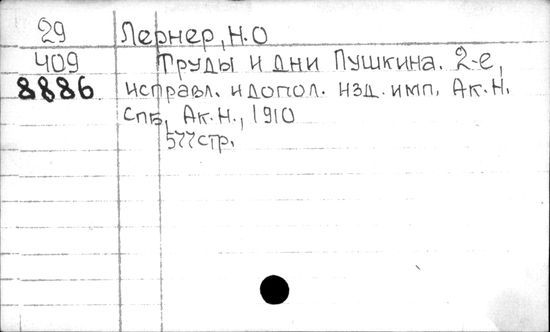 29 Лернер, Н.О
409 Труды и дни Пушкина. 2-е,
8886 исправл. и допол. изд. имп. Ак. Н.
Спб, Ак. Н., 1910
577 стр.